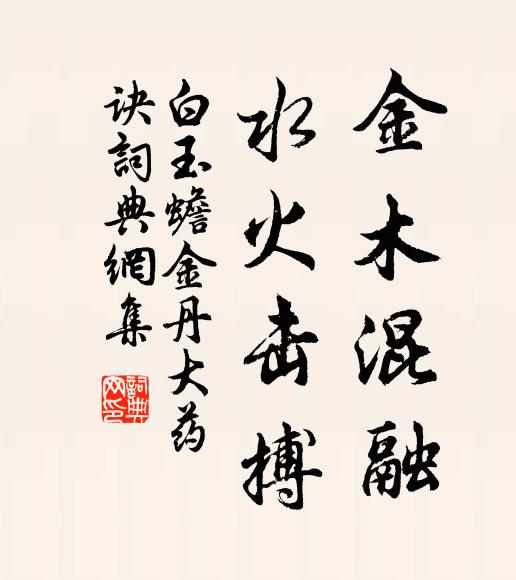 金木混融
水火击搏
白玉蟾金丹大药
诀詞典網集
詞典
网印